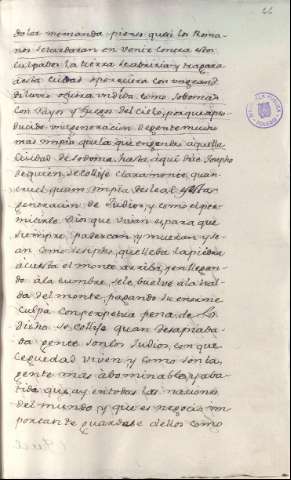 do las momanda pienso que si los Roma-
nos se tardaran en venir contra estos
culpados la tierra se abriria y tragara
a esta ciudad o pereciera con un grand
diluvio o fuera undida como Sodoma
con Rayos y fuegos del cielo, porque a pro-
ducido una generacion de gente mucho
mas ympia que la que engendro aquella
Ciudad de Sodoma. hasta aqui dice Josepho
de quien se collige claramente, quan
cruel, quam ympia desleal y esta
generacion de Judios, y como el per-
mitirlo Dios que vivan es para que
siempre padezcan y mueran y se-
an como sesipho, que lleba la piedra
acuesta el monte arriba, y en llegan-
do a la cumbre, se le buelve a la hal-
da del monte, pagando su enorme
culpa con perpetua pena, de lo
dicho se collige quan desapiada-
da gente son los Judios, con que
ceguedad viven y como son la
gente mas abominable y aba-
tida que ay en todas las naciones
del mundo y que es negocio im-
portante guardarse dellos como